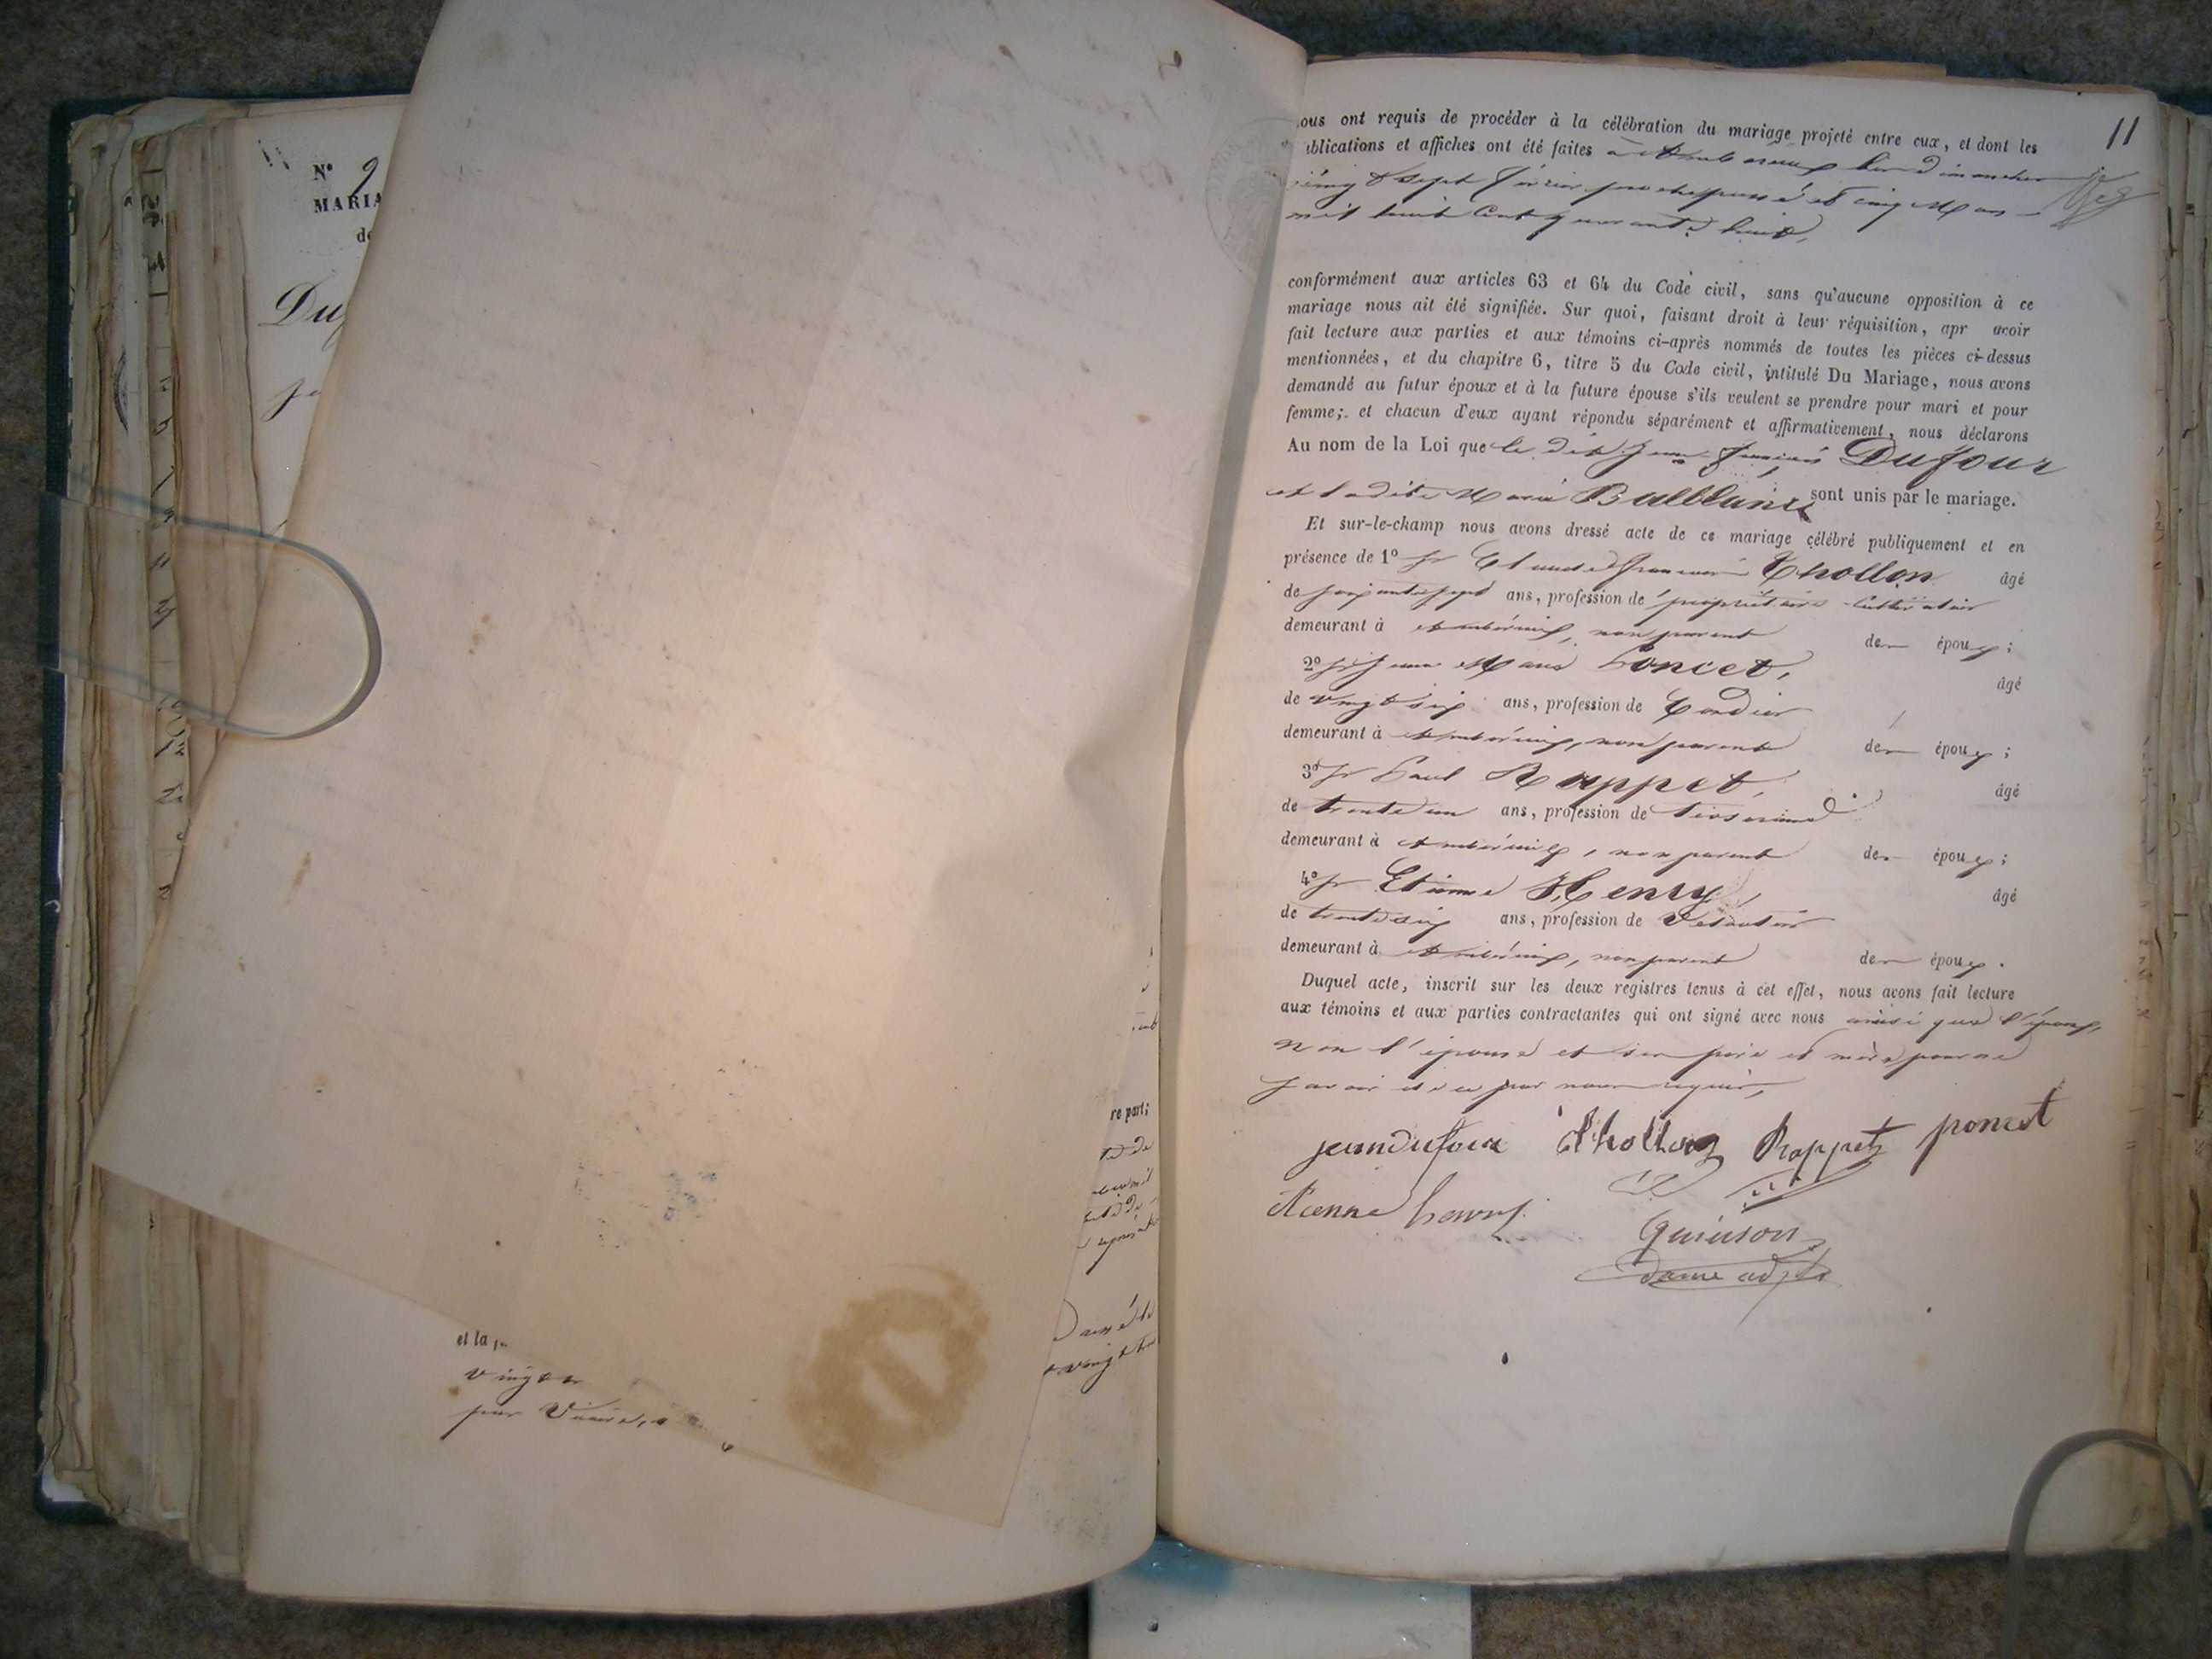 N° 9
MARIA
de
Duf
et la
vingt
pour
re part;
11
ous ont requis de procéder à la célébration du mariage projeté entre eux, et dont les
ublications et affiches ont été faites à Ambérieux les dimanches
vingt sept février passé et cinq Mars
mil huit cent quarante huit,
conformément aux articles 63 et 64 du Code civil, sans qu'aucune opposition à ce
mariage nous ait été signifiée. Sur quoi, faisant droit à leur réquisition, apr avoir
fait lecture aux parties et aux témoins ci-après nommés de toutes les pièces ci-dessus
mentionnées, et du chapitre 6, titre 5 du Code civil, intitulé Du Mariage, nous avons
demandé au futur époux et à la future épouse s'ils veulent se prendre pour mari et pour
femme; et chacun d'eux ayant répondu séparément et affirmativement, nous déclarons
Au nom de la Loi que le dit Jean François Dufour
et ladite Marie sont unis par le mariage.
Et sur-le-champ nous avons dressé acte de ce mariage célébré publiquement et en
présence de 1° Sr Claude François Thollon âgé
de soixante sept ans, profession de propriétaire cultivateur
demeurant à Ambérieux, non parent des époux;
2° Sr Jean Marie Poncet, âgé
de vingt six ans, profession de Cordier
demeurant à Ambérieux, non parent des époux;
3° Sr Paul Rappet, âgé
de trente un ans, profession de tisserand
demeurant à Ambérieux, non parent des époux;
4° Sr Etienne Henry, âgé
de trente six ans, profession de
demeurant à Ambérieux, non parent des époux.
Duquel acte, inscrit sur les deux registres tenus à cet effet, nous avons fait lecture
aux témoins et aux parties contractantes qui ont signé avec nous ainsi que l'époux,
non l'épouse et ses père et mère pour ne
savoir de ce par nous requis,
jean dufour Thollon Rappet poncet
etienne henry